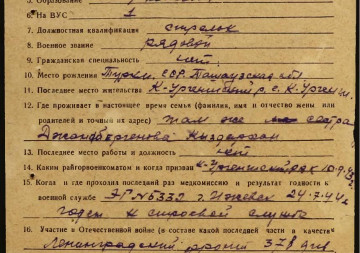 6. На ВУС 1
7. Должностная квалификация стрелок
8. Военное звание рядовой
9. Гражданская специальность нет
10. Место рождения Туркм. ССР, Ташаузская обл.
11. Последнее место жительства К-Ургенчский р. с. К-Ургенч
12. Где проживает в настоящее время семья (фамилия, имя и отчество жены или
родителей и точный их адрес) там же сестра
13. Последнее место работы и должность нет
14. Каким райгорвоенкоматом и когда призван К-Ургенчский
15. Когда и где проходил последний раз медкомиссию и результат годности к
военной службе ЭГ №5332 г. Ижевск 24.7.44
годен к строевой службе
16. Участие в Отечественной войне (в составе какой последней части в качестве
Ленинградский фронт 378